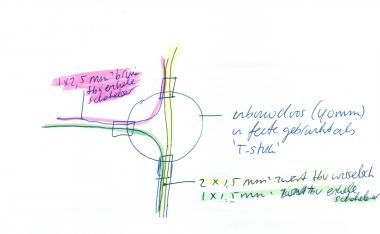 1 x 2,5 mm² bruin
tbv enkele
schakelaar
inbouwdoos (40mm)
in feite gebruikt als
'T-stuk'
2 x 1,5 mm² zwart tbv wisselsch
1 x 1,5 mm² zwart tbv enkele
schakelaar